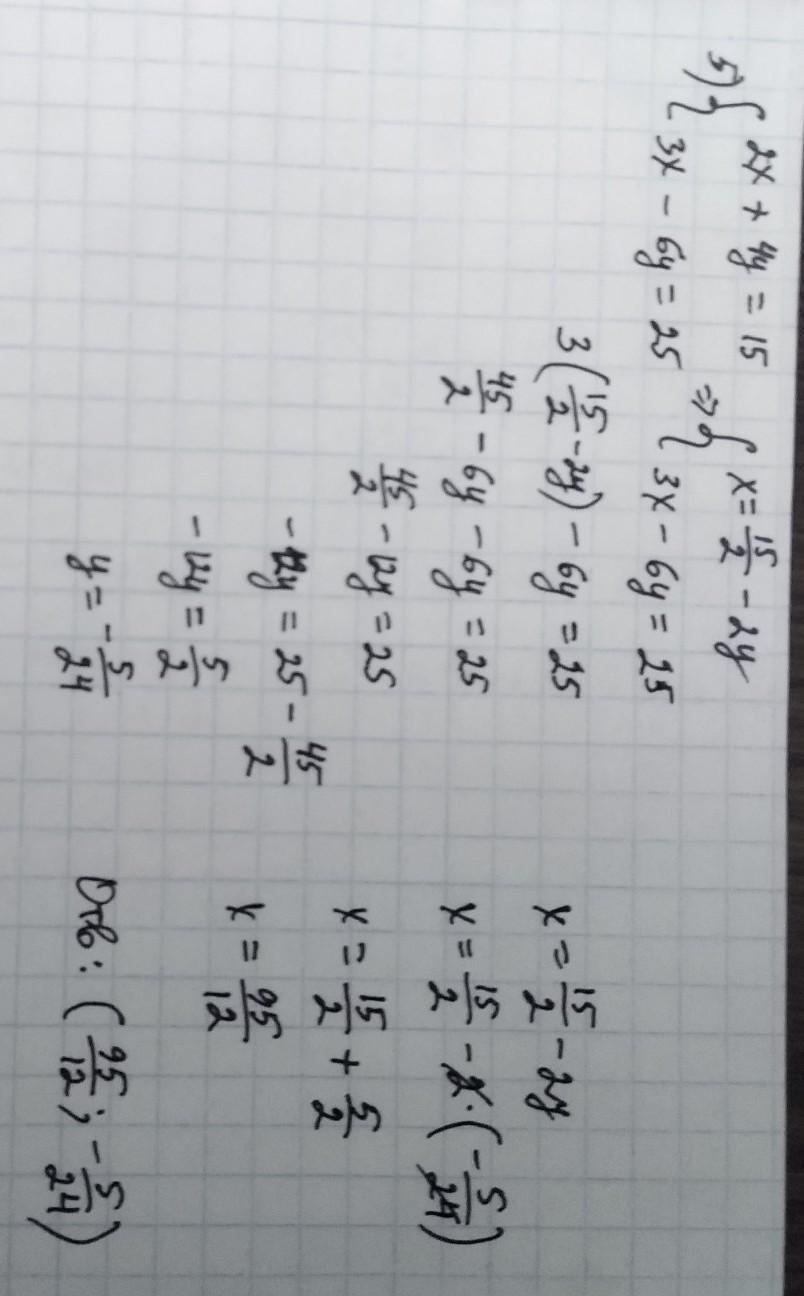 5) { 2x + 4y = 15
3x - 6y = 25 => { x = 15/2 - 2y
3x - 6y = 25
3(15/2 - 2y) - 6y = 25
45/2 - 6y - 6y = 25
45/2 - 12y = 25
-12y = 25 - 45/2
-12y = 5/2
y = - 5/24
x = 15/2 - 2y
x = 15/2 - 2·(-5/24)
x = 15/2 + 5/2
x = 95/12
Отв: (95/12; -5/24)